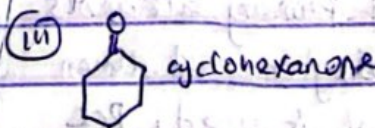 (iii)
O
cyclohexanone